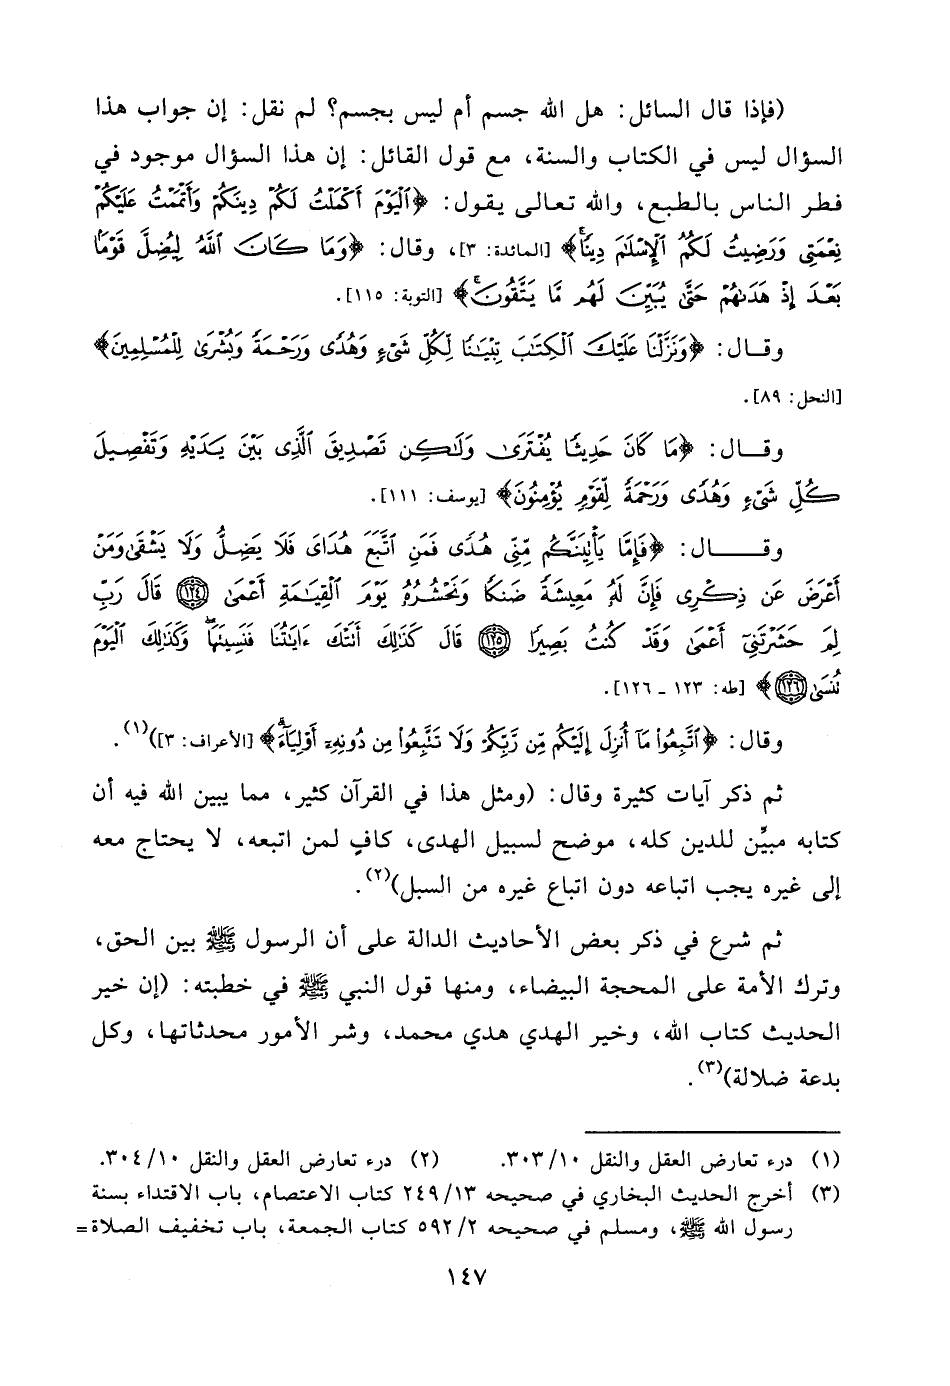 (فإذا قال السائل: هل الله جسم أم ليس بجسم؟ لم نقل: إن جواب هذا
السؤال ليس في الكتاب والسنة، مع قول القائل: إن هذا السؤال موجود في
فطر الناس بالطبع، والله تعالى يقول: ﴿ٱلۡيَوۡمَ أَكۡمَلۡتُ لَكُمۡ دِينَكُمۡ وَأَتۡمَمۡتُ عَلَيۡكُمۡ
نِعۡمَتِي وَرَضِيتُ لَكُمُ ٱلۡإِسۡلَٰمَ دِينٗاۚ﴾ [المائدة: ٣]، وقال: ﴿وَمَا كَانَ ٱللَّهُ لِيُضِلَّ قَوۡمَۢا
بَعۡدَ إِذۡ هَدَىٰهُمۡ حَتَّىٰ يُبَيِّنَ لَهُم مَّا يَتَّقُونَۚ﴾ [التوبة: ١١٥].
وقال: ﴿وَنَزَّلۡنَا عَلَيۡكَ ٱلۡكِتَٰبَ تِبۡيَٰنٗا لِّكُلِّ شَيۡءٖ وَهُدٗى وَرَحۡمَةٗ وَبُشۡرَىٰ لِلۡمُسۡلِمِينَ﴾
[النحل: ٨٩].
وقال: ﴿مَا كَانَ حَدِيثٗا يُفۡتَرَىٰ وَلَٰكِن تَصۡدِيقَ ٱلَّذِي بَيۡنَ يَدَيۡهِ وَتَفۡصِيلَ
كُلِّ شَيۡءٖ وَهُدٗى وَرَحۡمَةٗ لِّقَوۡمٖ يُؤۡمِنُونَ﴾ [يوسف: ١١١].
وقال: ﴿فَإِمَّا يَأۡتِيَنَّكُم مِّنِّي هُدٗى فَمَنِ ٱتَّبَعَ هُدَايَ فَلَا يَضِلُّ وَلَا يَشۡقَىٰ وَمَنۡ
أَعۡرَضَ عَن ذِكۡرِي فَإِنَّ لَهُۥ مَعِيشَةٗ ضَنكٗا وَنَحۡشُرُهُۥ يَوۡمَ ٱلۡقِيَٰمَةِ أَعۡمَىٰ ١٢٤ قَالَ رَبِّ
لِمَ حَشَرۡتَنِيٓ أَعۡمَىٰ وَقَدۡ كُنتُ بَصِيرٗا ١٢٥ قَالَ كَذَٰلِكَ أَتَتۡكَ ءَايَٰتُنَا فَنَسِيتَهَاۖ وَكَذَٰلِكَ ٱلۡيَوۡمَ
تُنسَىٰ ١٢٦﴾ [طه: ١٢٣ ـ ١٢٦].
وقال: ﴿ٱتَّبِعُواْ مَآ أُنزِلَ إِلَيۡكُم مِّن رَّبِّكُمۡ وَلَا تَتَّبِعُواْ مِن دُونِهِۦٓ أَوۡلِيَآءَۗ﴾ [الأعراف: ٣])(١).
ثم ذكر آيات كثيرة وقال: (ومثل هذا في القرآن كثير، مما يبين الله فيه أن
كتابه مبيِّن للدين كله، موضح لسبيل الهدى، كافٍ لمن اتبعه، لا يحتاج معه
إلى غيره يجب اتباعه دون اتباع غيره من السبل)(٢).
ثم شرع في ذكر بعض الأحاديث الدالة على أن الرسول ﷺ بين الحق،
وترك الأمة على المحجة البيضاء، ومنها قول النبي ﷺ في خطبته: (إن خير
الحديث كتاب الله، وخير الهدي هدي محمد، وشر الأمور محدثاتها، وكل
بدعة ضلالة)(٣).
(١) درء تعارض العقل والنقل ٣٠٣/١٠. (٢) درء تعارض العقل والنقل ٣٠٤/١٠.
(٣) أخرج الحديث البخاري في صحيحه ٢٤٩/١٣ كتاب الاعتصام، باب الاقتداء بسنة
رسول الله ﷺ، ومسلم في صحيحه ٥٩٢/٢ كتاب الجمعة، باب تخفيف الصلاة=
١٤٧